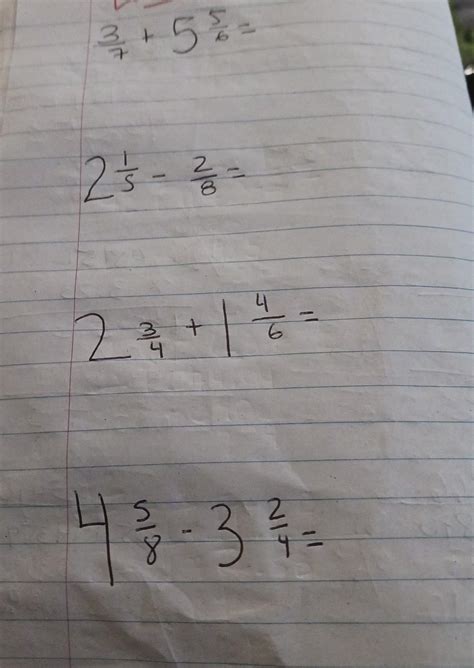 3/7 + 5 5/6 =
2 1/5 - 2/8 =
2 3/4 + 1 4/6 =
4 5/8 - 3 2/4 =